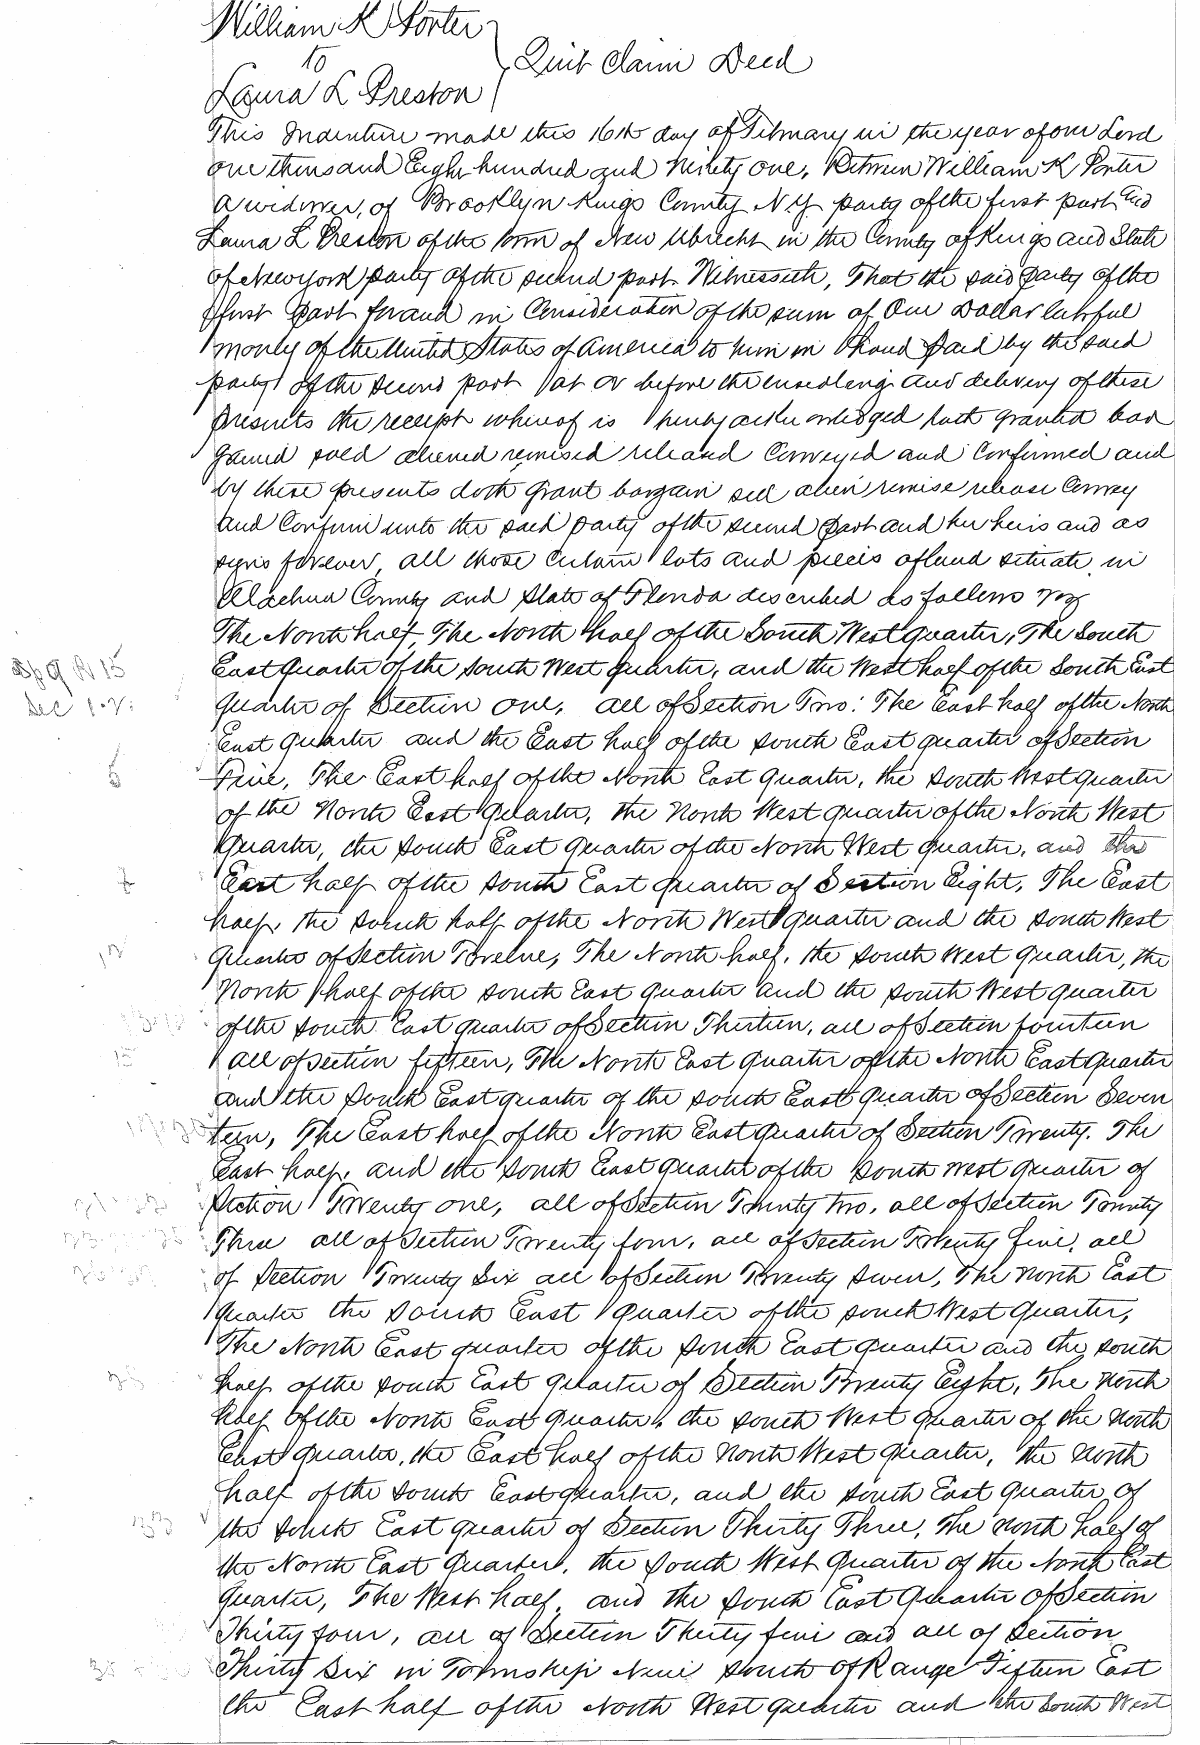 William K Porter
to
Quit Claim Deed
Laura L Preston
This Indenture made this 16th day of February in the year of our Lord
one thousand Eight hundred and Ninety one, Between William K Porter
a widower, of Brooklyn Kings County N.Y. party of the first part and
Laura L Preston of the town of New Utrecht in the County of Kings and State
of New York party of the second part Witnesseth, That the said party of the
first part for and in Consideration of the sum of One Dollar lawful
money of the United States of America to him in hand paid by the said
party of the second part at or before the ensealing and delivery of these
presents the receipt whereof is hereby acknowledged hath granted bar
gained sold aliened remised released Conveyed and Confirmed and
by these presents doth grant bargain sell alien remise release Convey
and Confirm unto the said party of the second part and her heirs and as
signs forever, all those Certain lots and pieces of land situate in
Alachua County and State of Florida described as follows viz
The North half, The North half of the South West quarter, The South
East Quarter of the South West quarter, and the West half of the South East
Sec 1.2.
quarter of Section one, all of Section Two: The East half of the North
East quarter and the East half of the South East quarter of Section
5
Five, The East half of the North East quarter, the South West quarter
of the North East Quarter, the North West quarter of the North West
Quarter, the South East quarter of the North West quarter, and the
East half of the South East quarter of Section Eight, The East
half, the South half of the North West quarter and the South West
12
quarter of Section Twelve, The North half, the South West quarter, the
North half of the South East quarter and the South West quarter
of the South East quarter of Section Thirteen, all of Section fourteen
15
all of section fifteen, The North East quarter of the North East quarter
and the South East quarter of the South East quarter of Section Seven
teen, The East half of the North East quarter of Section Twenty. The
East half, and the South East quarter of the South West quarter of
Section Twenty one, all of Section Twenty two, all of Section Twenty
Three all of Section Twenty four, all of Section Twenty five, all
of Section Twenty Six all of Section Twenty Seven, The North East
quarter the South East quarter of the South West quarter,
The North East quarter of the South East quarter and the South
28
half of the South East quarter of Section Twenty Eight, The North
half of the North East quarter, the South West quarter of the North
East quarter, the East half of the North West quarter, the North
half of the South East quarter, and the South East quarter of
33
the South East quarter of Section Thirty Three, The North half of
the North East Quarter, the South West quarter of the North East
quarter, The West half, and the South East quarter of Section
Thirty four, all of Section Thirty five and all of Section
Thirty Six in Township Nine South of Range Fifteen East
the East half of the North West quarter and the South West